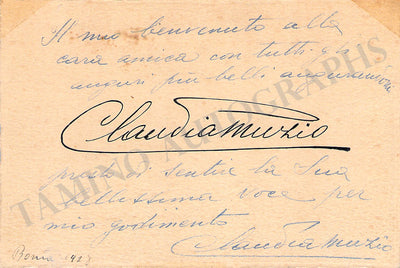 Il mio benvenuto alla
cara amica con tutti gli
auguri più belli
Claudia Muzio
di sentire la Sua
bellissima voce per
mio godimento
Claudia Muzio
Roma
TAMINO AUTOGRAPHS